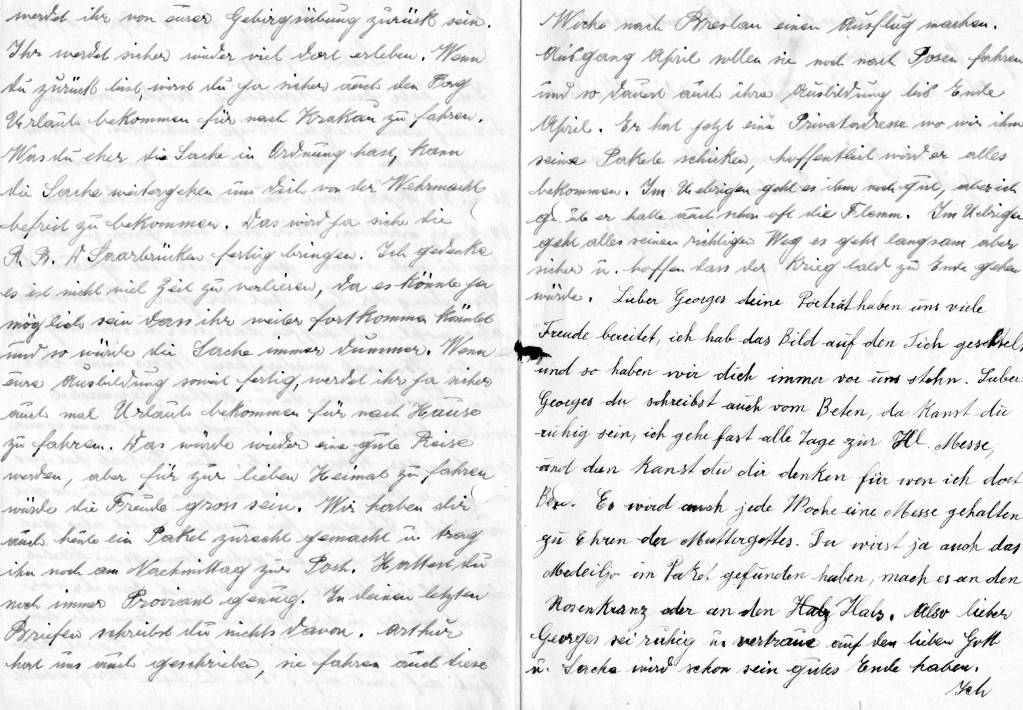 werdet ihr von eurer Gebirgsübung zurück sein.
Ihr werdet sicher wieder viel dort erleben. Wenn
du zurück bist, wirst du ja sicher auch den Tag
Urlaub bekommen für nach Krakau zu fahren.
Was du eher die Sache in Ordnung hast, kann
die Sache weitergehen um dich von der Wehrmacht
befreit zu bekommen. Das wird ja sicher die
R. B. D Saarbrücken fertig bringen. Ich gedenke
es ist nicht viel Zeit zu verlieren, da es könnte ja
möglich sein dass ihr weiter fortkommen könntet
und so würde die Sache immer dummer. Wenn
eure Ausbildung soweit fertig, werdet ihr ja sicher
auch mal Urlaub bekommen für nach Hause
zu fahren. Das würde wieder eine gute Reise
werden, aber für zur lieben Heimat zu fahren
würde die Freude gross sein. Wir haben dir
auch heute ein Paket zurecht gemacht u. trag
ihn noch am Nachmittag zur Post. Hattest du
noch immer Proviant genug. In deinen letzten
Briefen schreibst du nichts davon. Arthur
hat uns auch geschrieben, sie fahren auch diese
Woche nach Breslau einen Ausflug machen.
Ausgang April sollen sie noch nach Posen fahren
und so dauert auch ihre Ausbildung bis Ende
April. Er hat jetzt eine Privatadresse wo wir ihm
seine Pakete schicken, hoffentlich wird er alles
bekommen. Im Uebrigen geht es ihm noch gut, aber ich
er hatte auch schon oft die Flemm. Im Uebrigen
geht alles seinen richtigen Weg es geht langsam aber
sicher u. hoffen dass der Krieg bald zu Ende gehen
würde. Lieber Georges deine Porträt haben uns viele
Freude bereitet, ich hab das Bild auf den Tich gestellt
und so haben wir dich immer vor uns stehn. Lieber
Georges du schreibst auch vom Beten, da kanst du
ruhig sein, ich gehe fast alle Tage zur Hl. Messe,
und dan kanst du dir denken für wen ich dort
Bete. Es wird auch jede Woche eine Messe gehalten
zu Ehren der Muttergottes. Du wirst ja auch das
im Paket gefunden haben, mach es an den
Rosenkranz oder an den Halz Hals. Also lieber
Georges sei ruhig u. vertraue auf den lieben Gott
u. Sache wird schon sein gutes Ende haben.
Ich